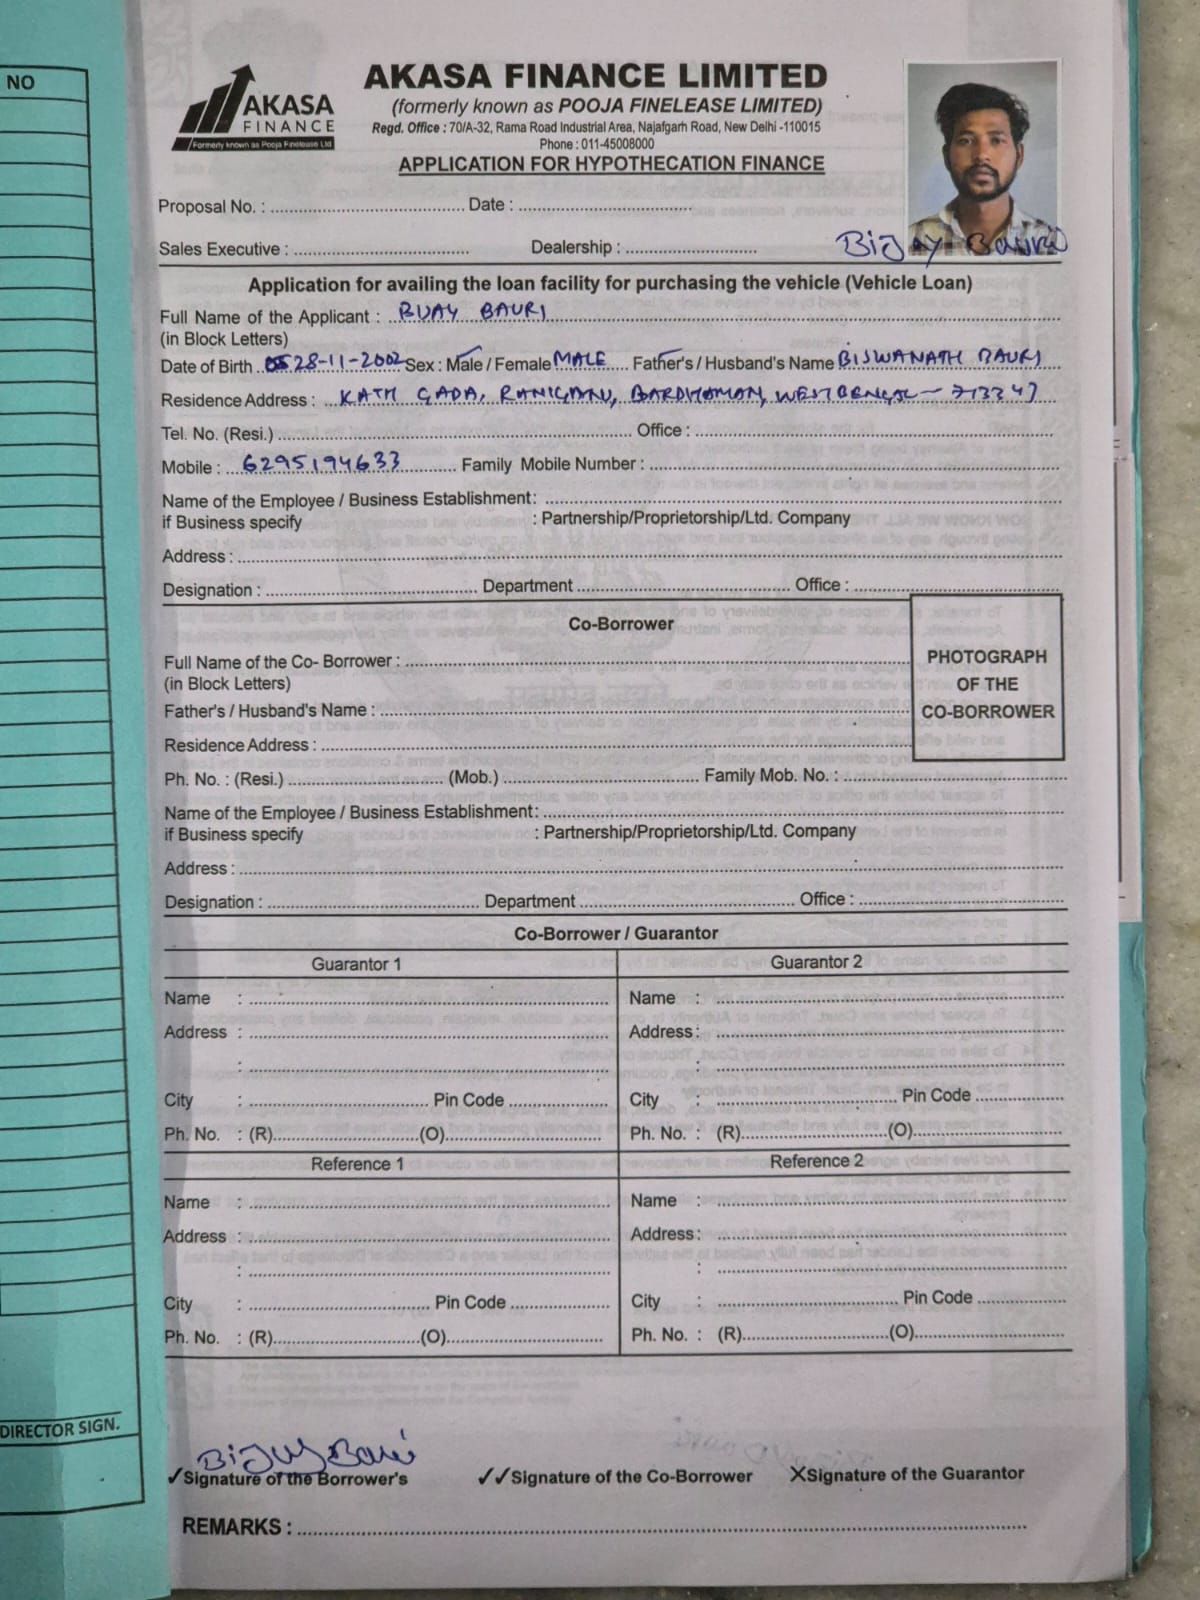 NO
AKASA
FINANCE
Formerly known as Pooja Finelease Ltd
AKASA FINANCE LIMITED
(formerly known as POOJA FINELEASE LIMITED)
Regd. Office : 70/A-32, Rama Road Industrial Area, Najafgarh Road, New Delhi -110015
Phone : 011-45008000
APPLICATION FOR HYPOTHECATION FINANCE
Proposal No. : Date :
Sales Executive : Dealership :
Bijay Bauri
Application for availing the loan facility for purchasing the vehicle (Vehicle Loan)
Full Name of the Applicant : BIJAY BAURI
(in Block Letters)
Date of Birth 28-11-2002 Sex : Male / Female MALE Father's / Husband's Name BISWANATH BAURI
Residence Address : KATH GADA, RANIGANJ, BARDHAMAN, WEST BENGAL - 713347
Tel. No. (Resi.) Office :
Mobile : 6295194633 Family Mobile Number :
Name of the Employee / Business Establishment:
if Business specify : Partnership/Proprietorship/Ltd. Company
Address :
Designation : Department Office :
Co-Borrower
Full Name of the Co- Borrower :
(in Block Letters)
Father's / Husband's Name :
Residence Address :
PHOTOGRAPH
OF THE
CO-BORROWER
Ph. No. : (Resi.) (Mob.) Family Mob. No. :
Name of the Employee / Business Establishment:
if Business specify : Partnership/Proprietorship/Ltd. Company
Address :
Designation : Department Office :
Co-Borrower / Guarantor
Guarantor 1 Guarantor 2
Name : Name :
Address : Address :
: :
City : Pin Code City : Pin Code
Ph. No. : (R) (O) Ph. No. : (R) (O)
Reference 1 Reference 2
Name : Name :
Address : Address :
: :
City : Pin Code City : Pin Code
Ph. No. : (R) (O) Ph. No. : (R) (O)
DIRECTOR SIGN.
Bijay Bauri
✓Signature of the Borrower's ✓✓Signature of the Co-Borrower XSignature of the Guarantor
REMARKS :